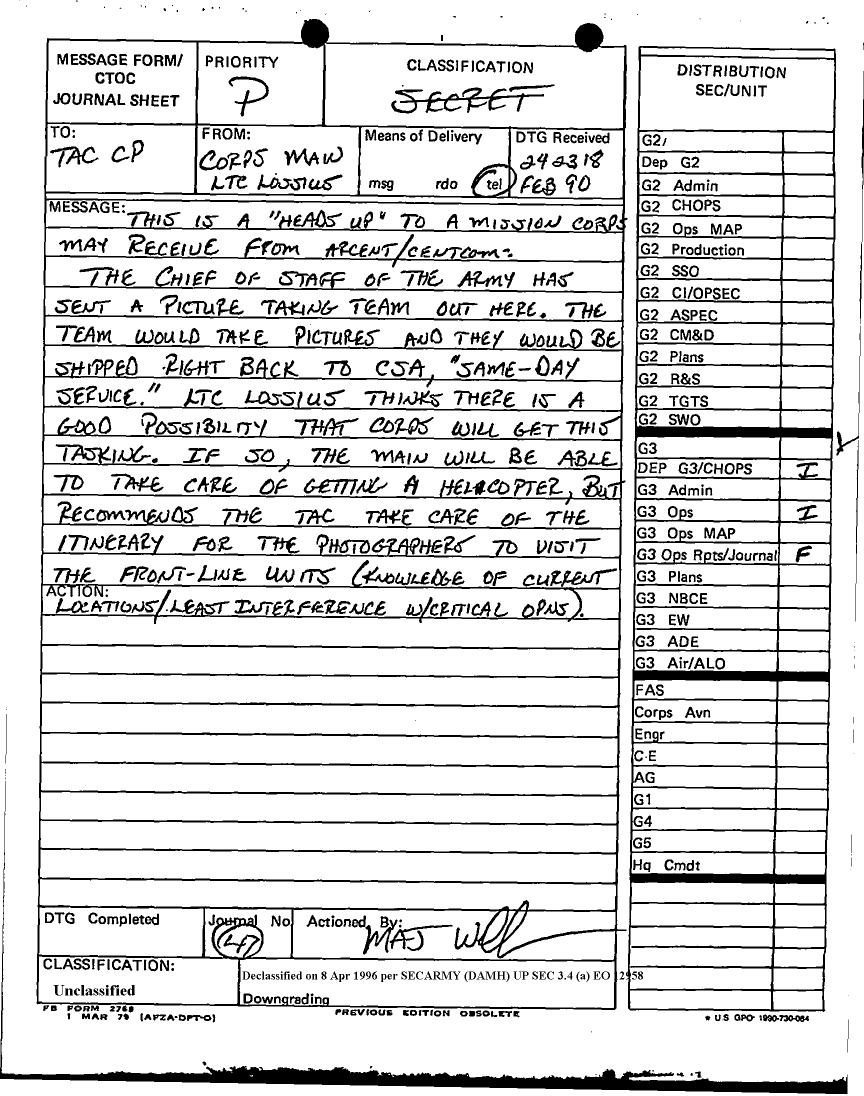 MESSAGE FORM/
CTOC
JOURNAL SHEET
PRIORITY
P
CLASSIFICATION
SECRET
TO:
TAC CP
FROM:
CORPS MAIN
LTC LOSSIUS
Means of Delivery
msg rdo tel
DTG Received
242318
FEB 90
MESSAGE:
THIS IS A "HEADS UP" TO A MISSION CORPS
MAY RECEIVE FROM ARCENT/CENTCOM:
THE CHIEF OF STAFF OF THE ARMY HAS
SENT A PICTURE TAKING TEAM OUT HERE. THE
TEAM WOULD TAKE PICTURES AND THEY WOULD BE
SHIPPED RIGHT BACK TO CSA, "SAME-DAY
SERVICE." LTC LOSSIUS THINKS THERE IS A
GOOD POSSIBILITY THAT CORPS WILL GET THIS
TASKING. IF SO, THE MAIN WILL BE ABLE
TO TAKE CARE OF GETTING A HELICOPTER, BUT
RECOMMENDS THE TAC TAKE CARE OF THE
ITINERARY FOR THE PHOTOGRAPHERS TO VISIT
THE FRONT-LINE UNITS (KNOWLEDGE OF CURRENT
ACTION:
LOCATIONS/LEAST INTERFERENCE W/CRITICAL OPNS).
DTG Completed
Journal No
47
Actioned By:
MAJ
CLASSIFICATION:
Unclassified
Declassified on 8 Apr 1996 per SECARMY (DAMH) UP SEC 3.4 (a) EO 12958
Downgrading
FB FORM 2768
1 MAR 79 (AFZA-DPT-O)
PREVIOUS EDITION OBSOLETE
DISTRIBUTION
SEC/UNIT
G2/
Dep G2
G2 Admin
G2 CHOPS
G2 Ops MAP
G2 Production
G2 SSO
G2 CI/OPSEC
G2 ASPEC
G2 CM&D
G2 Plans
G2 R&S
G2 TGTS
G2 SWO
G3
DEP G3/CHOPS I
G3 Admin
G3 Ops I
G3 Ops MAP
G3 Ops Rpts/Journal F
G3 Plans
G3 NBCE
G3 EW
G3 ADE
G3 Air/ALO
FAS
Corps Avn
Engr
C-E
AG
G1
G4
G5
Hq Cmdt
* U.S GPO- 1990-730-084